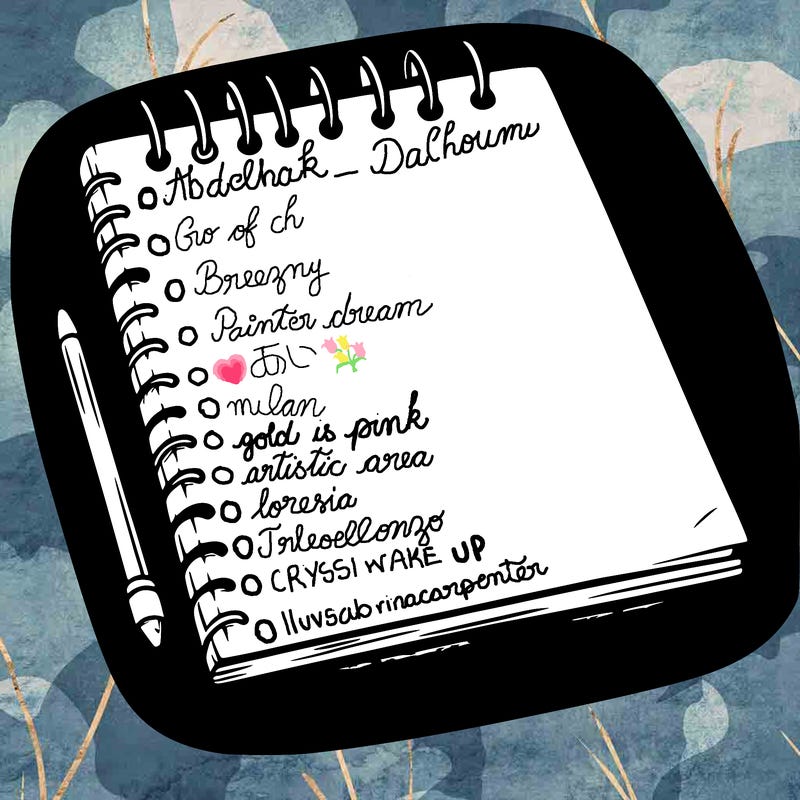 Abdelhak_Dalhoumi
Gwo of ch
Breezny
Painter dream
💗あい💐
milan
gold is pink
artistic area
loresia
Trleoellonzo
CRYSSI WAKE UP
lluvsabrinacarpenter